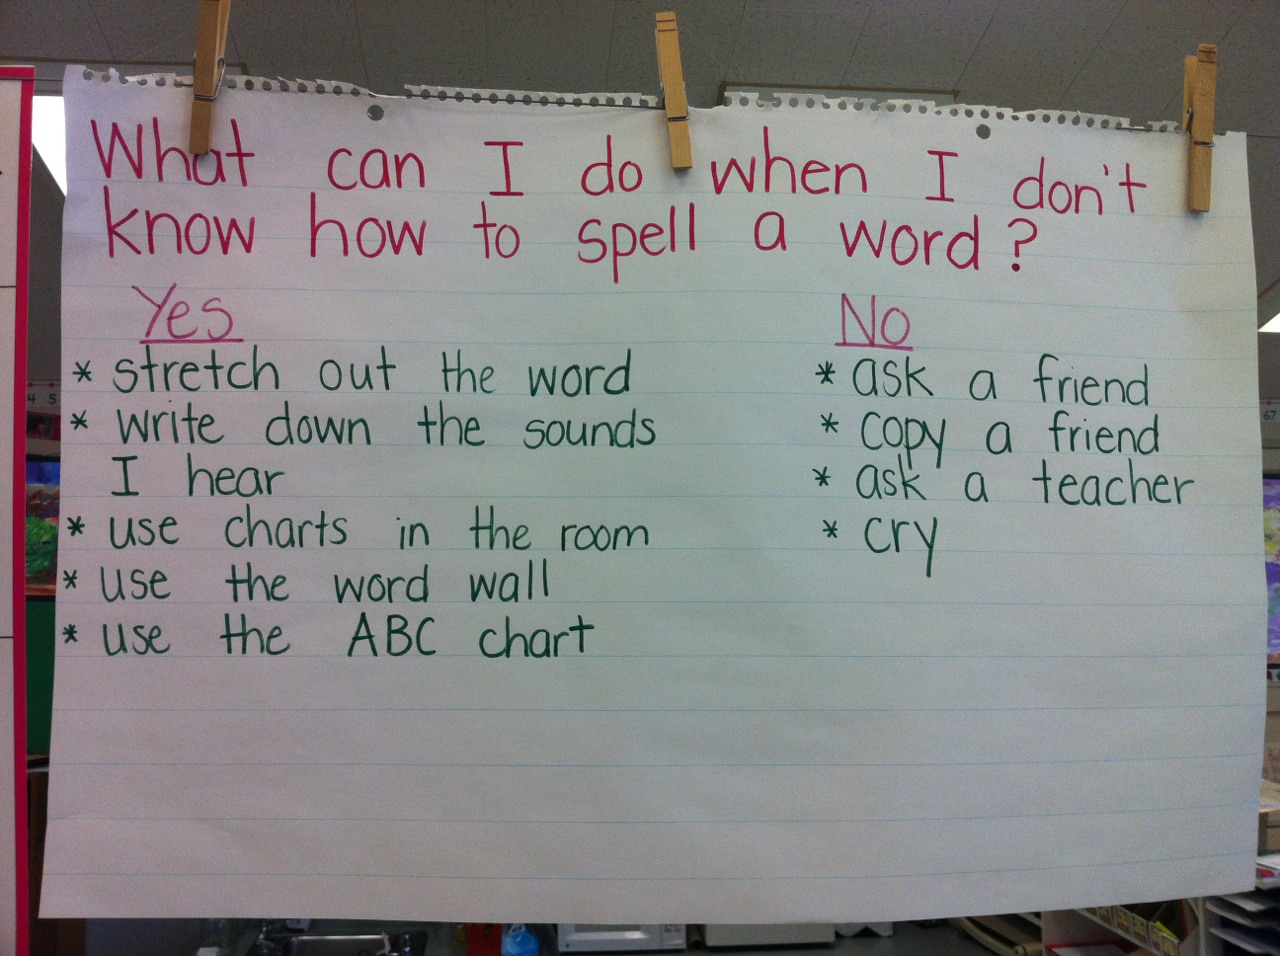 What can I do when I don't
know how to spell a word?
Yes
* stretch out the word
* write down the sounds
I hear
* use charts in the room
* use the word wall
* use the ABC chart
No
* ask a friend
* copy a friend
* ask a teacher
* cry
4 5
67